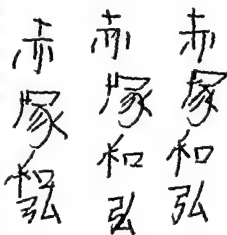 赤塚和弘
赤塚和弘
赤塚和弘